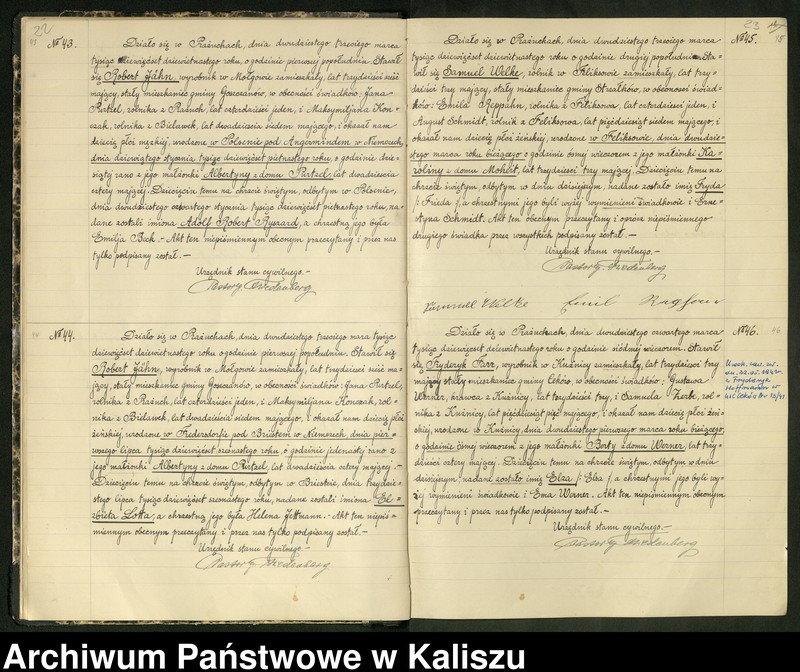 22
43
№ 43.
Działo się w Prażuchach, dnia dwudziestego trzeciego marca
tysiąc dziewięćset dziewiętnastego roku, o godzinie pierwszej popołudniu. Stawił
się Robert Jähn, wyrobnik w Molgowie zamieszkały, lat trzydzieści sześć
mający, stały mieszkaniec gminy Goszczanów, w obecności świadków: Jana
Pirtzel, rolnika z Prażuch, lat czterdzieści jeden, i Maksymiljana Kon=
czak, rolnika z Bielawek, lat dwadzieścia siedem mającego, i okazał nam
dziecię płci męzkiej, urodzone w Polsenie pod Angermündem w Niemczech,
dnia dziewiątego stycznia tysiąc dziewięćset piętnastego roku, o godzinie dzie=
siątej rano z jego małżonki Albertyny z domu Pirtzel, lat dwadzieścia
cztery mającej. Dziecięciu temu na chrzcie świętym, odbytym w Polsenie,
dnia dwudziestego czwartego stycznia tysiąc dziewięćset piętnastego roku, na=
dane zostali imiona Adolf Robert Ryszard, a chrzestną jego była
Emilja Bich. – Akt ten niepiśmiennym obecnym przeczytany i przez nas
tylko podpisany został. –
Urzędnik stanu cywilnego. –
Pastor Fredenberg
44
№ 44.
Działo się w Prażuchach, dnia dwudziestego trzeciego marca tysiąc
dziewięćset dziewiętnastego roku o godzinie pierwszej popołudniu. Stawił się
Robert Jähn, wyrobnik w Molgowie zamieszkały, lat trzydzieści sześć ma=
jący, stały mieszkaniec gminy Goszczanów, w obecności świadków: Jana Pirtzel,
rolnika z Prażuch, lat czterdzieści jeden, i Maksymiljana Konczak, rol=
nika z Bielawek, lat dwadzieścia siedem mającego, i okazał nam dziecię płci
żeńskiej, urodzone w Fredersdorfie pod Briestem w Niemczech, dnia pier=
wszego lipca tysiąc dziewięćset szesnastego roku, o godzinie jedenastej rano z
jego małżonki Albertyny z domu Pirtzel, lat dwadzieścia cztery mającej. –
Dziecięciu temu na chrzcie świętym, odbytym w Briestnie, dnia trzydzie=
stego lipca tysiąc dziewięćset szesnastego roku, nadane zostali imiona El=
żbieta Lotta, a chrzestną jego była Helena Jettmann. – Akt ten niepiś=
miennym obecnym przeczytany i przez nas tylko podpisany został. –
Urzędnik stanu cywilnego. –
Pastor Fredenberg
23
№ 45.
Działo się w Prażuchach, dnia dwudziestego trzeciego marca
tysiąc dziewięćset dziewiętnastego roku o godzinie drugiej popołudniu. Sta=
wił się Samuel Welke, rolnik w Feliksowie zamieszkały, lat trzy=
dzieści trzy mający, stały mieszkaniec gminy Strzałków, w obecności świad=
ków: Emila Reppahn, rolnika z Feliksowa, lat czterdzieści jeden, i
August Schmidt, rolnik z Feliksowa, lat pięćdziesiąt siedem mającego; i
okazał nam dziecię płci żeńskiej, urodzone w Feliksowie, dnia dwudzie=
stego marca roku bieżącego o godzinie ósmej wieczorem z jego małżonki Ka=
roliny z domu Mohert, lat trzydzieści trzy mającej. Dziecięciu temu na
chrzcie świętym, odbytym w dniu dzisiejszym, nadane zostało imię Fryda
/: Frieda :/, a chrzestnymi jego byli wyżej wymienieni świadkowie i Erne=
styna Schmidt. Akt ten obecnym przeczytany i oprócz niepiśmiennego
drugiego świadka przez wszystkich podpisany został. –
Urzędnik stanu cywilnego. –
Pastor Fredenberg
Samuel Welke Emil
46
№ 46.
Działo się w Prażuchach, dnia dwudziestego czwartego marca
tysiąc dziewięćset dziewiętnastego roku o godzinie siódmej wieczorem. Stawił
się Fryderyk Farr, wyrobnik w Kuźnicy zamieszkały, lat trzydzieści trzy
mający stały mieszkaniec gminy Ceków, w obecności świadków: Gustawa
Werner, krawca z Kuźnicy, lat trzydzieści trzy, i Samuela Zerbe, rol=
nika z Kuźnicy, lat pięćdziesiąt pięć mającego; i okazał nam dziecię płci żeń=
skiej, urodzone w Kuźnicy, dnia dwudziestego pierwszego marca roku bieżącego,
o godzinie ósmej wieczorem z jego małżonki Berty z domu Werner, lat trzy=
dzieści cztery mającej. Dziecięciu temu na chrzcie świętym, odbytym w dniu
dzisiejszym, nadane zostało imię Elza /: Elsa :/, a chrzestnymi jego byli wy=
żej wymienieni świadkowie i Ema Werner. Akt ten niepiśmiennym obecnym
przeczytany i przez nas tylko podpisany został. –
Urzędnik stanu cywilnego. –
Pastor Fredenberg
z Fryderyk
Hoffmanów w
Archiwum Państwowe w Kaliszu